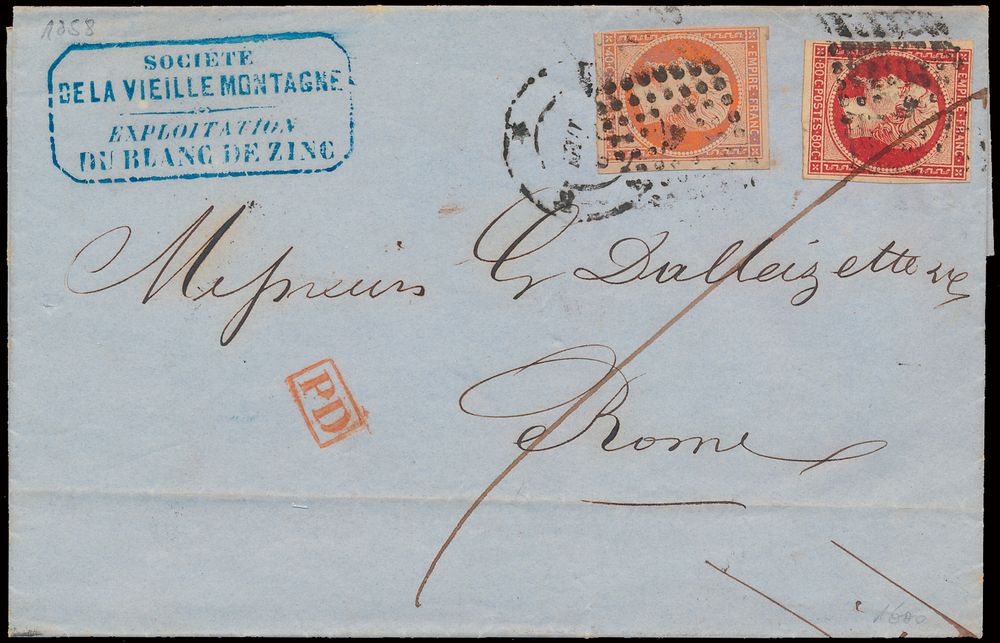 1858
SOCIÉTÉ
DE LA VIEILLE MONTAGNE
EXPLOITATION
DU BLANC DE ZINC
EMPIRE FRANC
EMPIRE FRANC
80C POSTES 80C
Messieurs
Dalleizette
PD
Rome